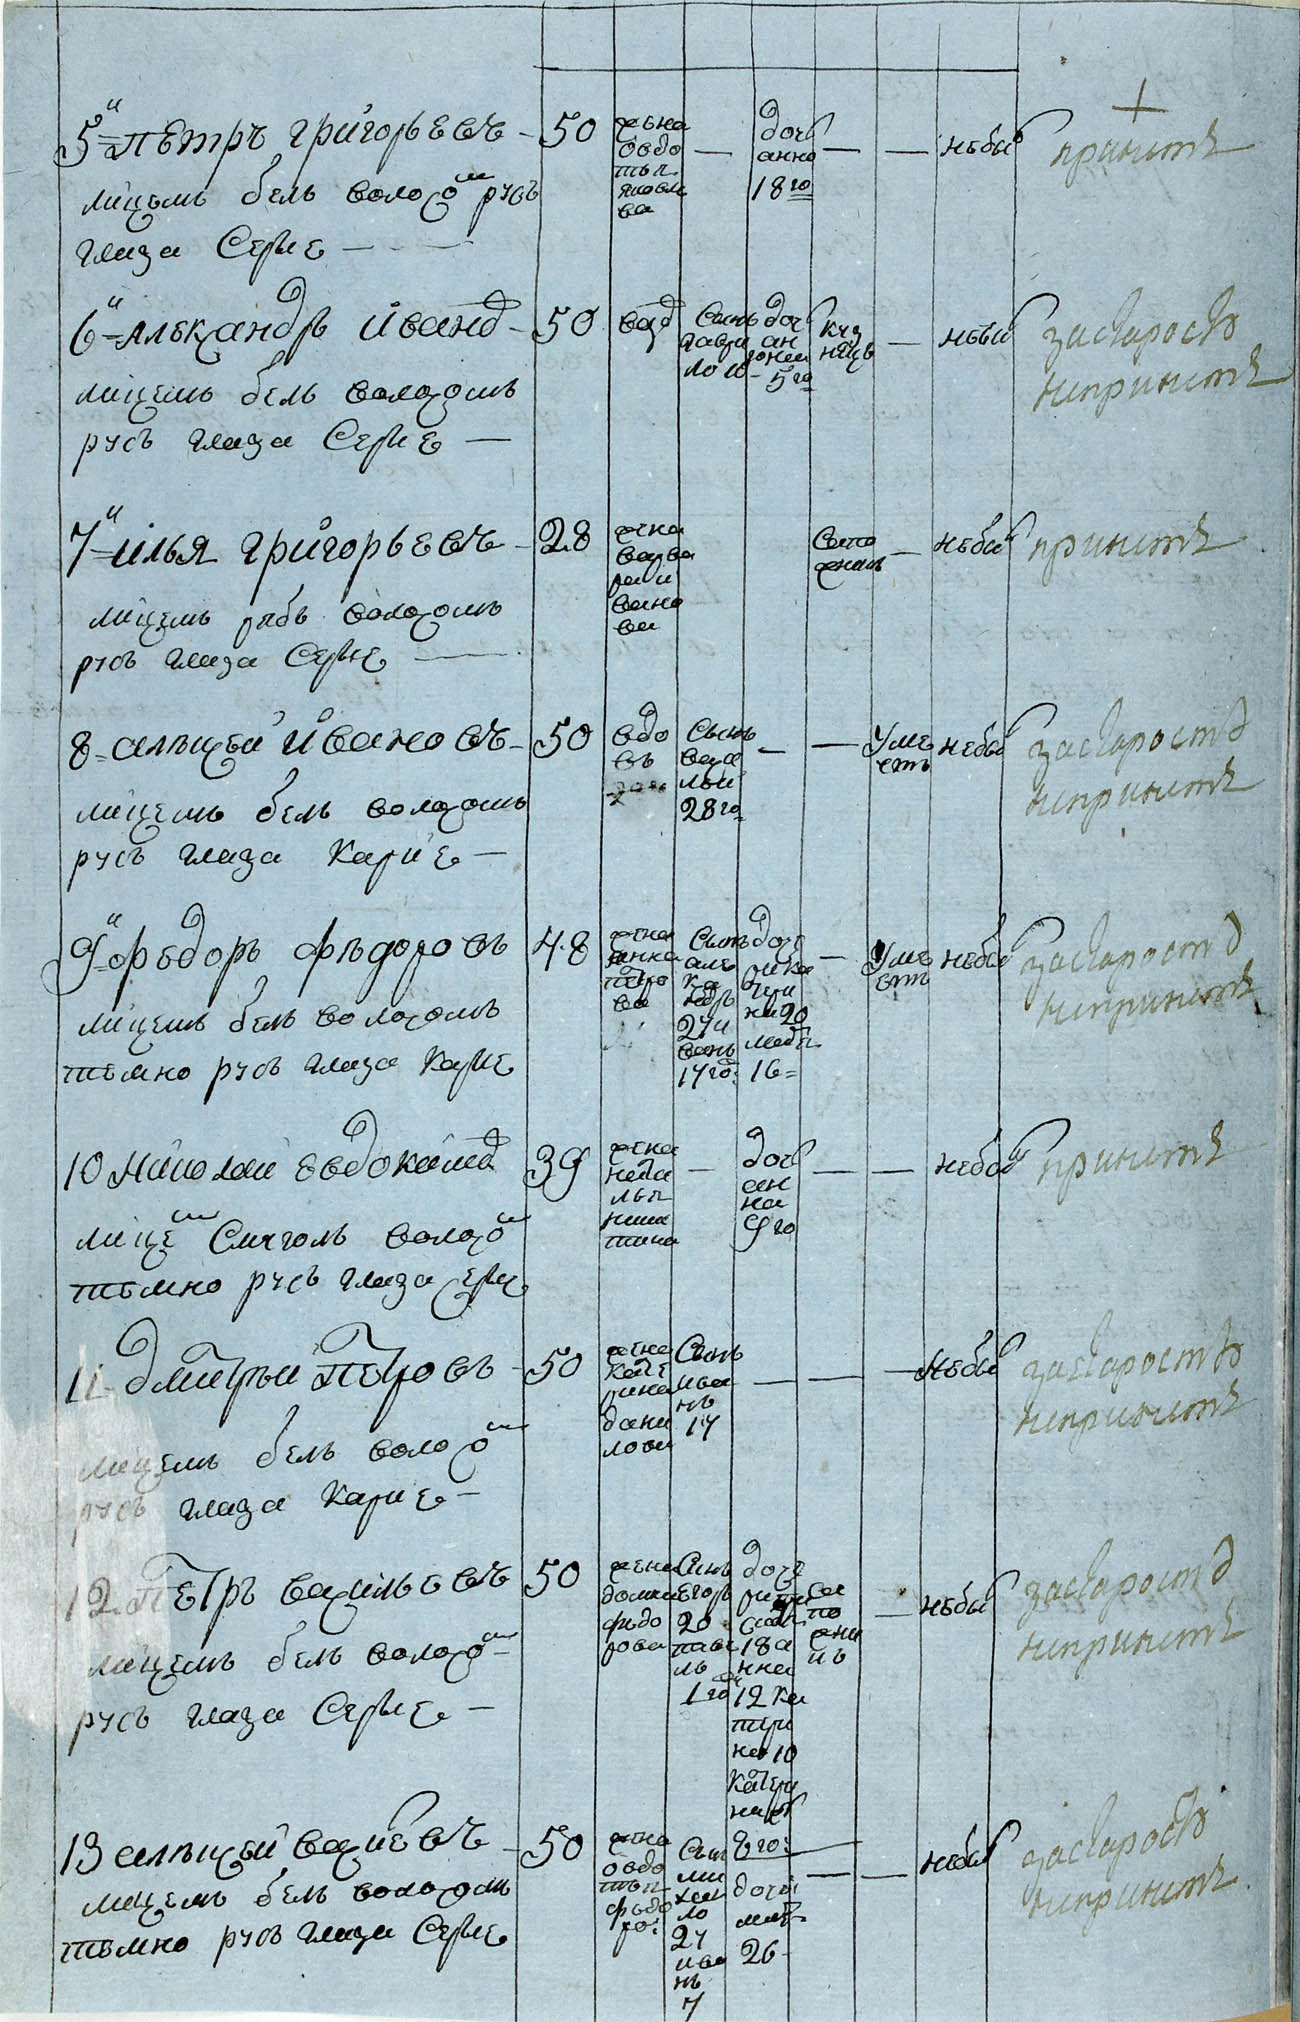 5й петръ григорьевъ 50 жена овдо тья яковле ва — дочь анна 18 го — — небы принетъ
лицемъ белъ волосом русъ
глаза серые
6й александръ иванов 50 вдов сынъ гаври ло 10 дочь 5 го кузнецъ — небы застаростью
непринетъ
лицемъ белъ волосомъ
русъ глаза серые
7й илья григорьевъ 28 жена варва ра и ванова сапожникъ — небы принетъ
лицемъ рябъ волосомъ
русъ глаза серые
8 алексей ивановъ 50 вдо въ сынъ васи лей 28 го — — умеетъ небы застаростью
непринетъ
лицемъ белъ волосомъ
русъ глаза карие
9й федоръ федоровъ 48 жена анна петро ва сынъ александръ иванъ 17 го дочь 20 16 — умеетъ небы застаростью
непринетъ
лицемъ белъ волосомъ
темно русъ глаза карие
10 николай евдокимов 39 жена ната лья никитина — дочь анна 9 го — — небы принетъ
лице смуголъ волосом
темно русъ глаза серые
11 дмитрей петровъ 50 жена кате рина дани лова сынъ иванъ 17 — — — небы застаростью
непринетъ
лицемъ белъ волосом
русъ глаза карие
12 петръ васильевъ 50 жена домна федо рова сынъ егоръ 20 павелъ 1 год дочь 18 анна 12 катерина 10 сапожникъ — небы застаростью
непринетъ
лицемъ белъ волосом
русъ глаза серые
13 алексей васиевъ 50 жена овдо тья федо ро: сын михайло 27 иванъ 7 дочь 26 — — небы застаростью
непринетъ
лицемъ белъ волосом
темно русъ глаза серые